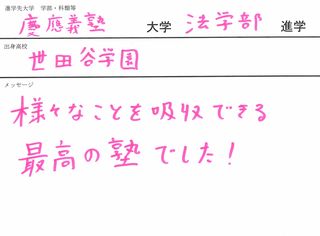 進学先大学 学部・科類等
慶應義塾 大学 法学部 進学
出身高校
世田谷学園
メッセージ
様々なことを吸収できる
最高の塾でした!